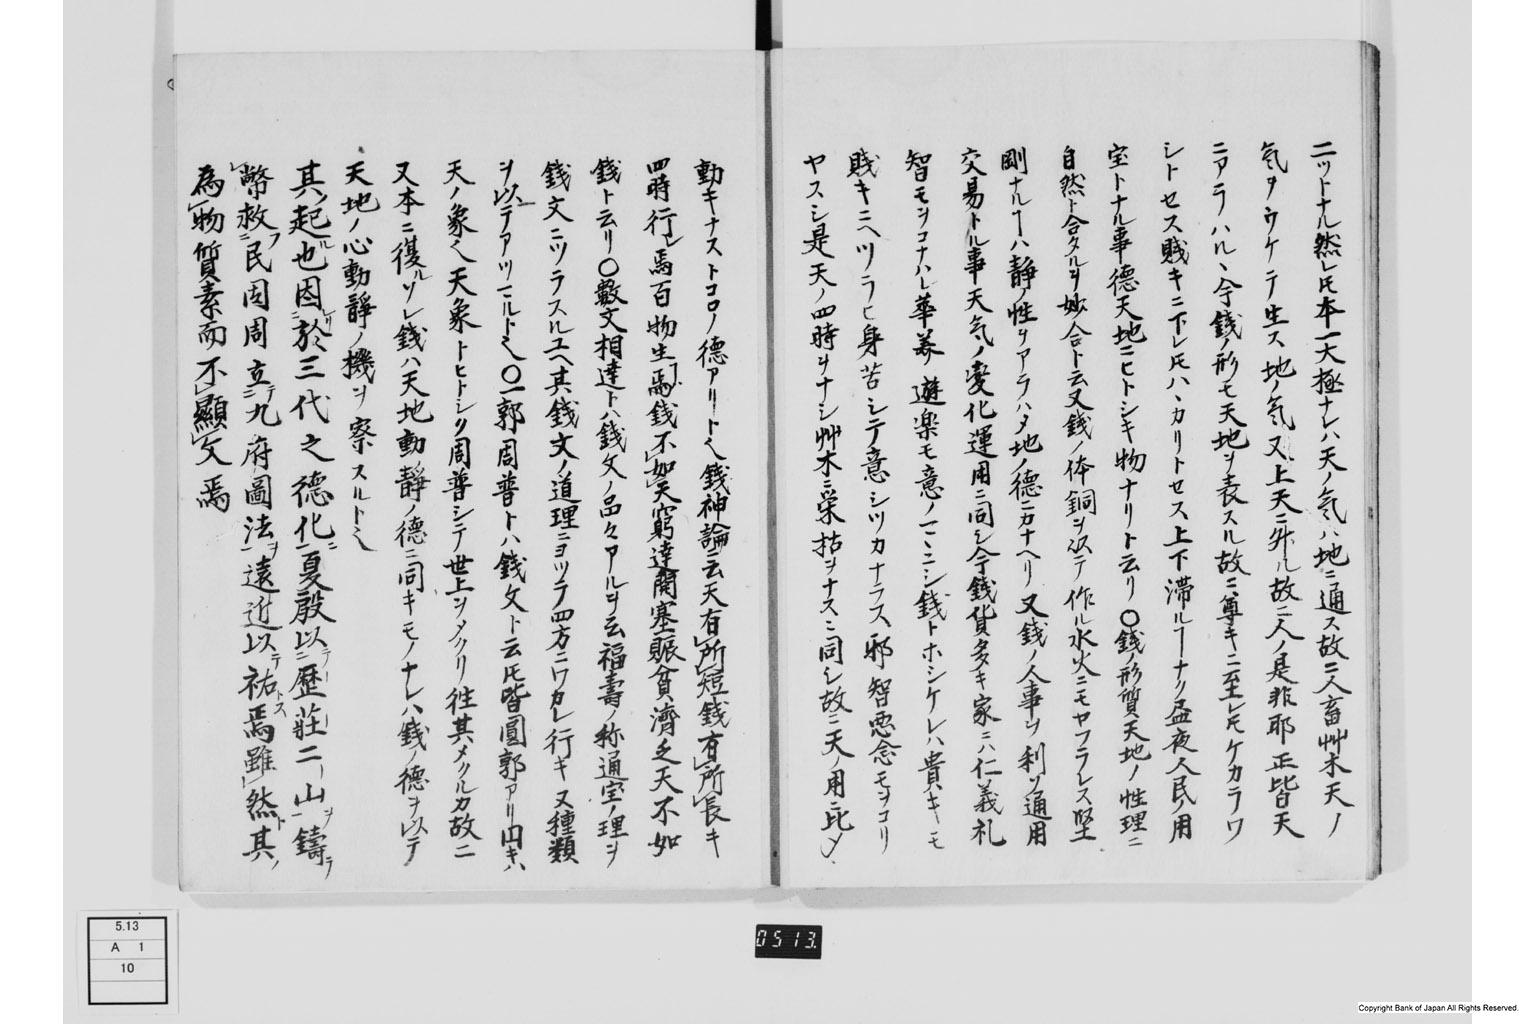 ニツトナル然レ𪜈本一大極ナレハ天ノ気ハ地ニ通ス故ニ人畜艸木天ノ
気ヲウケテ生ス地ノ気又上天ニ升ル故ニ人ノ是非邪正皆天
ニアラハルヽ今銭ノ形モ天地ヲ表スル故ニ尊キニ至レ𪜈ケカラワ
シトセス賎キニ下レ𪜈ハヽカリトセス上下滞ルヿナク昼夜人民ノ用
宝トナル事徳天地ニヒトシキ物ナリト云リ〇銭ノ形質天地ノ性理ニ
自然ト合タルヲ妙合ト云又銭ノ体銅ヲ以テ作ル水火ニモヤフラレス堅
剛ナルヿハ静ノ性ヲアラハタ地ノ徳ニカナヘリ又銭ノ人事ヲ利ソ通用
交易トル事天気ノ変化運用ニ同シ今銭貨多キ家ニハ仁義礼
智モヲコナハレ華美遊楽モ意ノマヽニシ銭トホシケレハ貴キモ
賎キニヘツラヒ身苦シテ意シツカナラス邪智悪念モヲコリ
ヤスシ是天ノ四時ヲナシ艸木ニ栄枯ヲナスニ同シ故ニ天ノ用ニ比メ
動キナストコロノ徳アリト也銭神論ニ云天有所短銭有所長キ
四時行レ焉百物生焉銭不如天窮達開塞賑貧済乏天不如
銭ト云リ〇數文相達トハ銭文ノ品々アルヲ云福壽ノ称通宝ノ理ヲ
銭文ニツラスルユヘ其銭文ノ道理ニヨツテ四方ニワカレ行キ又種類
ヲ以テアツマルト也〇一郭周普トハ銭文ト云𪜈皆圓郭アリ円キハ
天ノ象也天象トヒトシク周普シテ世上ヲメクリ往其メクルカ故ニ
又本ニ復ルソレ銭ハ天地動静ノ徳ニ同キモノナレハ銭ノ徳ヲ以テ
天地ノ心動静ノ機ヲ察スルト也
其起ル也因レリ於三代之徳化ニ夏殷以テ歴荘二山ヲ鑄テ
幣救フ民ヲ周周立テ九府圖法ヲ遠近以テ祐トス焉雖然ト其ノ
為物質素而不顯文焉
5.13
A 1
10
0513.
Copyright Bank of Japan All Rights Reserved.